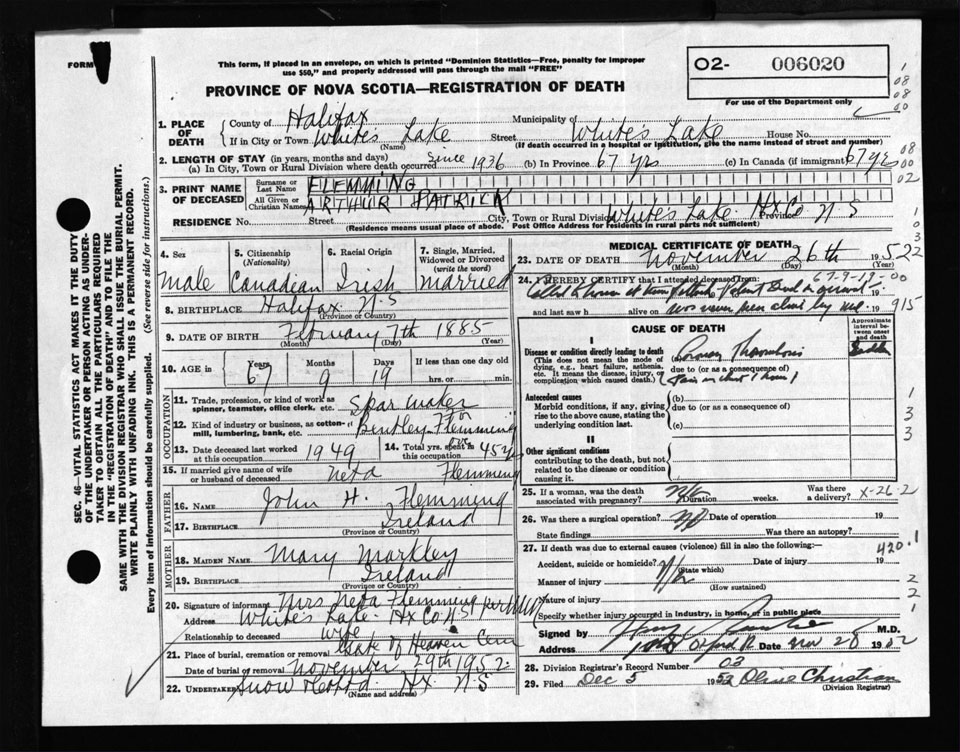 FORM
This form, if placed in an envelope, on which is printed "Dominion Statistics—Free, penalty for improper
use $50," and properly addressed will pass through the mail "FREE"
PROVINCE OF NOVA SCOTIA—REGISTRATION OF DEATH
O2- 006020
For use of the Department only
1. PLACE OF DEATH
County of Halifax Municipality of
If in City or Town White's Lake Street White's Lake House No.
(Name) (If death occurred in a hospital or institution, give the name instead of street and number)
2. LENGTH OF STAY (in years, months and days)
(a) In City, Town or Rural Division where death occurred Since 1936 (b) In Province 67 yrs (c) In Canada (if immigrant) 67 yrs
3. PRINT NAME OF DECEASED
Surname or Last Name FLEMMING
All Given or Christian Names ARTHUR PATRICK
RESIDENCE No. Street City, Town or Rural Division White's Lake Hx Co Province N-S
(Residence means usual place of abode. Post Office Address for residents in rural parts not sufficient)
4. Sex Male
5. Citizenship (Nationality) Canadian
6. Racial Origin Irish
7. Single, Married, Widowed or Divorced (write the word) Married
8. BIRTHPLACE Halifax N-S
(Province or Country)
9. DATE OF BIRTH February 7th 1885
(Month) (Day) (Year)
10. AGE in Years 67 Months 9 Days 19 If less than one day old hrs. or min.
OCCUPATION
11. Trade, profession, or kind of work as spinner, teamster, office clerk, etc. Spar Maker
12. Kind of industry or business, as cotton-mill, lumbering, bank, etc. Bentley Flemming
13. Date deceased last worked at this occupation 1949 14. Total yrs. spent in this occupation 45
15. If married give name of wife or husband of deceased Neta Flemming
FATHER
16. NAME John H. Flemming
17. BIRTHPLACE Ireland
(Province or Country)
MOTHER
18. MAIDEN NAME Mary Markley
19. BIRTHPLACE Ireland
(Province or Country)
20. Signature of informant Mrs Neta Flemming per
Address White's Lake Hx Co N.S
Relationship to deceased wife
21. Place of burial, cremation or removal Gate of Heaven Cem
Date of burial or removal November 29th 1952
22. Undertaker Snow Hx. N-S
(Name and address)
MEDICAL CERTIFICATE OF DEATH
23. DATE OF DEATH November 26th 1952
(Month) (Day) (Year)
24. I HEREBY CERTIFY that I attended deceased from 19
and last saw h alive on was never seen alive by me 19
CAUSE OF DEATH
Approximate interval between onset and death
I
Disease or condition directly leading to death
(This does not mean the mode of dying, e.g., heart failure, asthenia, etc. It means the disease, injury, or complication which caused death.)
Coronary Thrombosis
due to (or as a consequence of)
Antecedent causes
Morbid conditions, if any, giving rise to the above cause, stating the underlying condition last.
(b)
due to (or as a consequence of)
(c)
II
Other significant conditions
contributing to the death, but not related to the disease or condition causing it.
25. If a woman, was the death associated with pregnancy? Duration weeks. Was there a delivery? X-26-2
26. Was there a surgical operation? No Date of operation 19
State findings Was there an autopsy?
27. If death was due to external causes (violence) fill in also the following:—
Accident, suicide or homicide? Date of injury 19
(State which)
Manner of injury
(How sustained)
Nature of injury
Specify whether injury occurred in industry, in home, or in public place
Signed by M.D.
Address Date Nov 28 19
28. Division Registrar's Record Number 03
29. Filed Dec 5 1952 Olive Christian
(Division Registrar)
67-9-19-00
915
420.1
SEC. 46—VITAL STATISTICS ACT MAKES IT THE DUTY
OF THE UNDERTAKER OR PERSON ACTING AS UNDER-
TAKER TO OBTAIN ALL THE PARTICULARS REQUIRED
IN THE "REGISTRATION OF DEATH" AND TO FILE THE
SAME WITH THE DIVISION REGISTRAR WHO SHALL ISSUE THE BURIAL PERMIT.
WRITE PLAINLY WITH UNFADING INK. THIS IS A PERMANENT RECORD.
Every item of information should be carefully supplied. (See reverse side for instructions.)